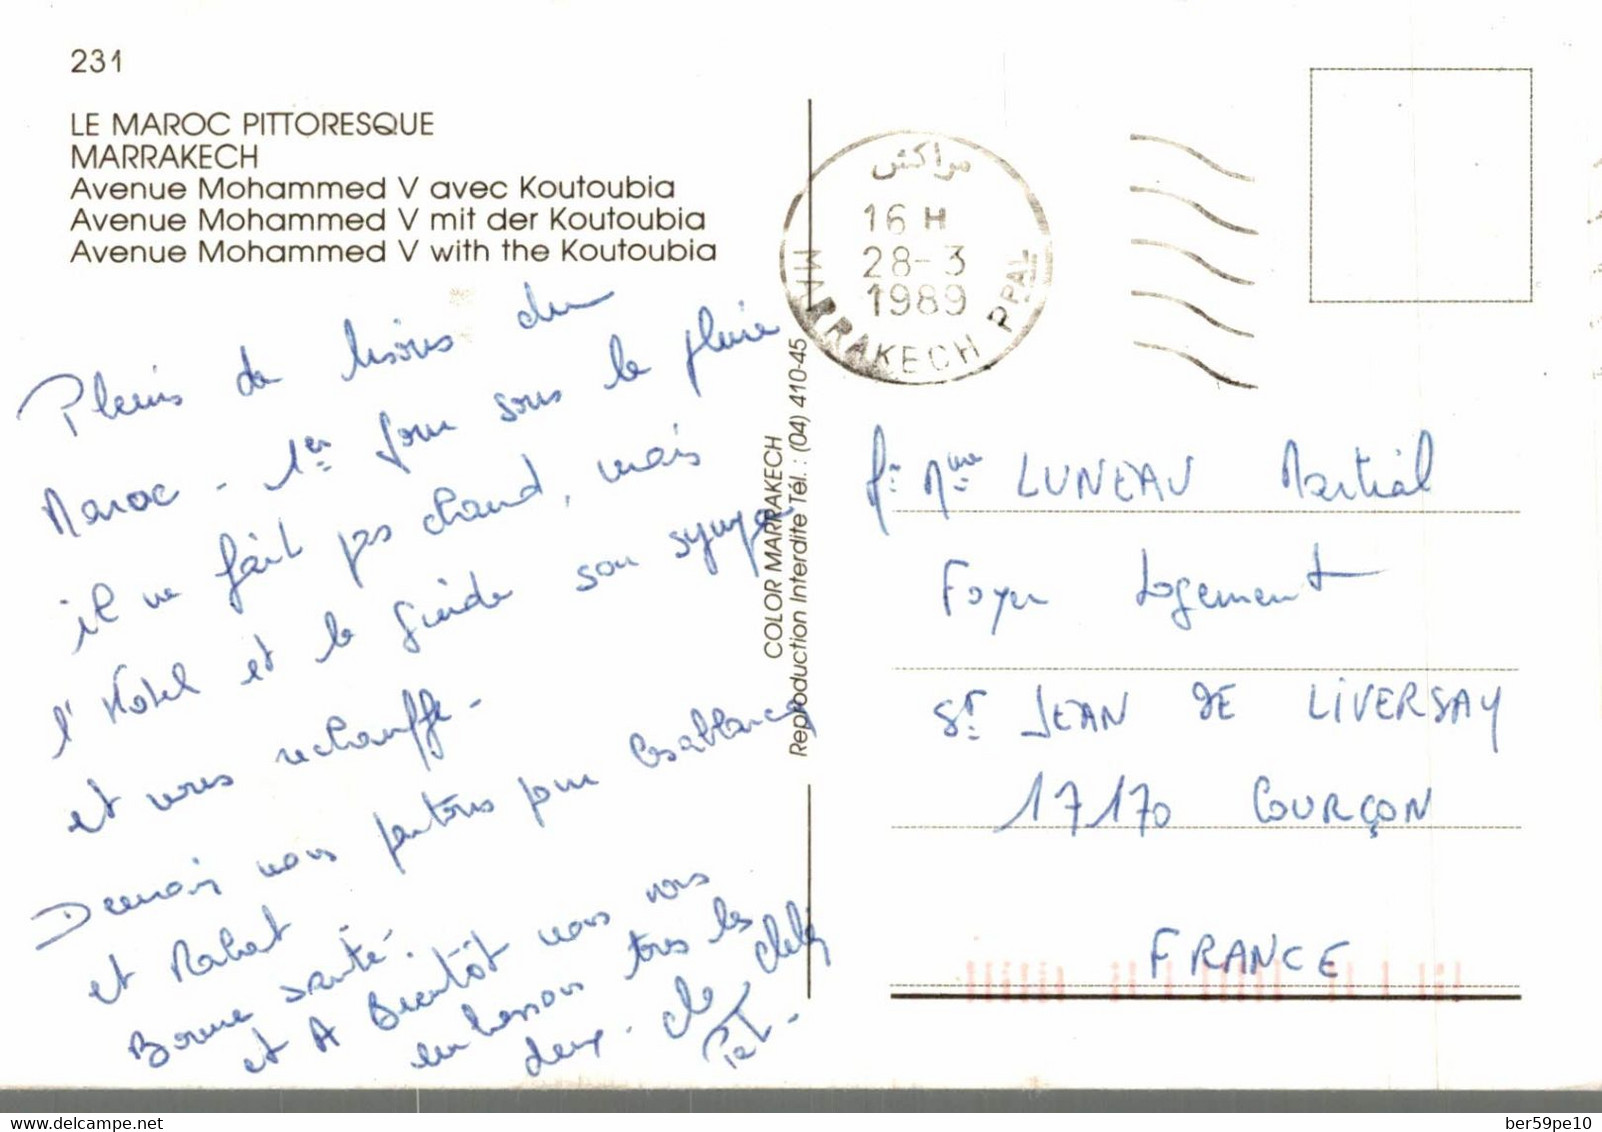 231
LE MAROC PITTORESQUE
MARRAKECH
Avenue Mohammed V avec Koutoubia
Avenue Mohammed V mit der Koutoubia
Avenue Mohammed V with the Koutoubia
Pleins de bisous du
Maroc - 1er jour sous la pluie
il ne fait pas chaud, mais
l'Hotel et le guide son sympa
et nous rechauffe -
Demain nous partons pour Casablanca
et Rabat.
Bonne santé.
et A Bientôt nous vous
embrassons tous les
deux -
Pat -
COLOR MARRAKECH
Reproduction Interdite Tél. : (04) 410-45
مراكش
16 H
28-3
1989
MARRAKECH PPAL
Mr Mme LUNEAU Martial
Foyer Logement
St JEAN DE LIVERSAY
17170 COURÇON
FRANCE
delcampe.net
ber59pe10